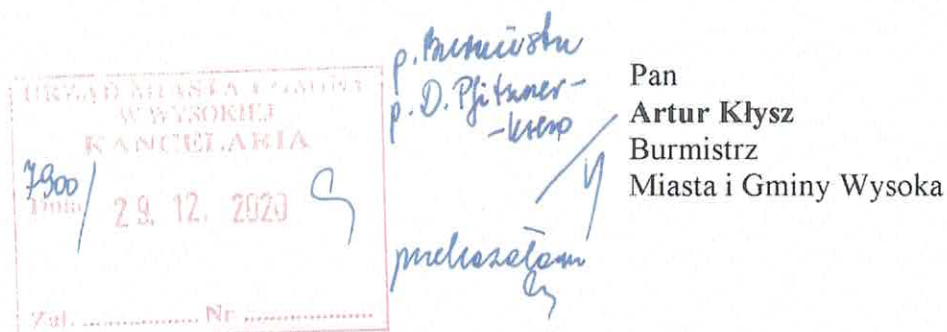 URZĄD MIASTA I GMINY
W WYSOKIEJ
KANCELARIA
7900
Dnia 29. 12. 2020
Zał. .................. Nr ..................
p. Burmistrz
p. D. Pfitzner-
przekazałam
Pan
Artur Kłysz
Burmistrz
Miasta i Gminy Wysoka